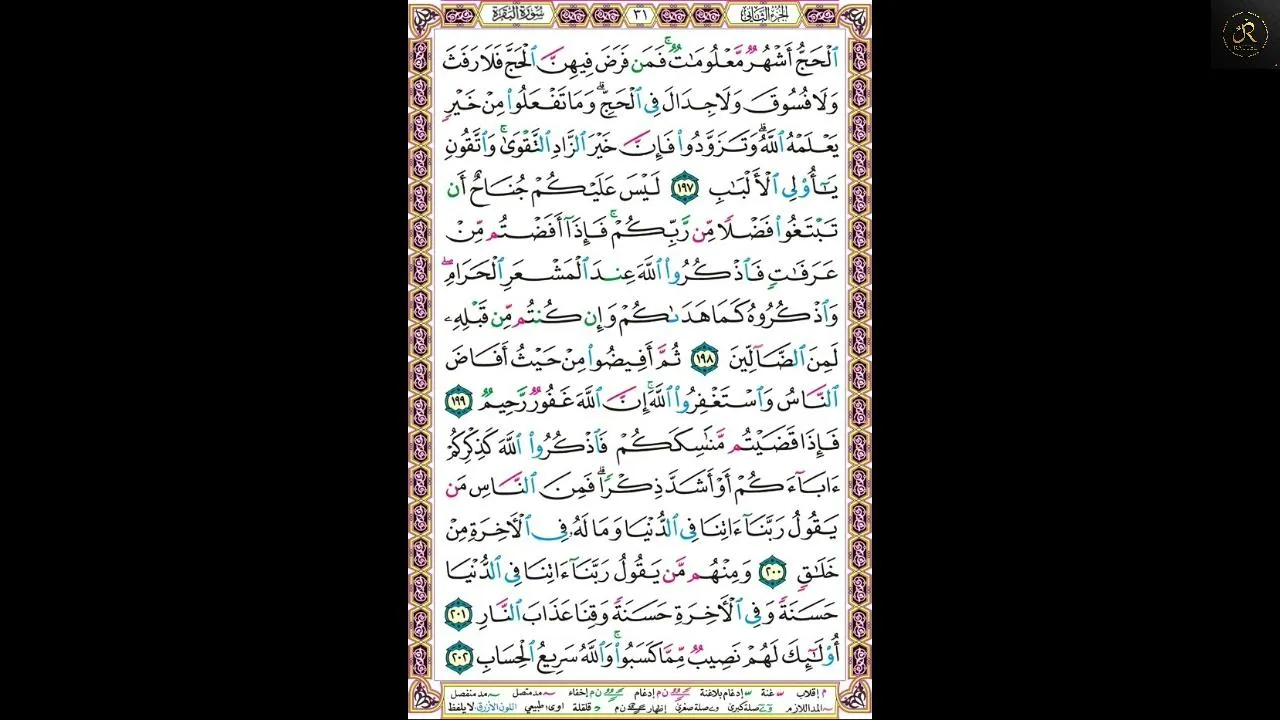 الجزء الثاني ٣١ سورة البقرة
ٱلْحَجُّ أَشْهُرٌ مَّعْلُومَـٰتٌ ۚ فَمَن فَرَضَ فِيهِنَّ ٱلْحَجَّ فَلَا رَفَثَ
وَلَا فُسُوقَ وَلَا جِدَالَ فِى ٱلْحَجِّ ۗ وَمَا تَفْعَلُوا۟ مِنْ خَيْرٍ
يَعْلَمْهُ ٱللَّهُ ۗ وَتَزَوَّدُوا۟ فَإِنَّ خَيْرَ ٱلزَّادِ ٱلتَّقْوَىٰ ۚ وَٱتَّقُونِ
يَـٰٓأُو۟لِى ٱلْأَلْبَـٰبِ ١٩٧ لَيْسَ عَلَيْكُمْ جُنَاحٌ أَن
تَبْتَغُوا۟ فَضْلًا مِّن رَّبِّكُمْ ۚ فَإِذَآ أَفَضْتُم مِّنْ
عَرَفَـٰتٍ فَٱذْكُرُوا۟ ٱللَّهَ عِندَ ٱلْمَشْعَرِ ٱلْحَرَامِ ۖ
وَٱذْكُرُوهُ كَمَا هَدَىٰكُمْ وَإِن كُنتُم مِّن قَبْلِهِۦ
لَمِنَ ٱلضَّآلِّينَ ١٩٨ ثُمَّ أَفِيضُوا۟ مِنْ حَيْثُ أَفَاضَ
ٱلنَّاسُ وَٱسْتَغْفِرُوا۟ ٱللَّهَ ۚ إِنَّ ٱللَّهَ غَفُورٌ رَّحِيمٌ ١٩٩
فَإِذَا قَضَيْتُم مَّنَـٰسِكَكُمْ فَٱذْكُرُوا۟ ٱللَّهَ كَذِكْرِكُمْ
ءَابَآءَكُمْ أَوْ أَشَدَّ ذِكْرًا ۗ فَمِنَ ٱلنَّاسِ مَن
يَقُولُ رَبَّنَآ ءَاتِنَا فِى ٱلدُّنْيَا وَمَا لَهُۥ فِى ٱلْـَٔاخِرَةِ مِنْ
خَلَـٰقٍ ٢٠٠ وَمِنْهُم مَّن يَقُولُ رَبَّنَآ ءَاتِنَا فِى ٱلدُّنْيَا
حَسَنَةً وَفِى ٱلْـَٔاخِرَةِ حَسَنَةً وَقِنَا عَذَابَ ٱلنَّارِ ٢٠١
أُو۟لَـٰٓئِكَ لَهُمْ نَصِيبٌ مِّمَّا كَسَبُوا۟ ۚ وَٱللَّهُ سَرِيعُ ٱلْحِسَابِ ٢٠٢
م إقلاب غنة إدغام بلاغنة ن م إدغام ن م إخفاء مد متصل مد منفصل
المد اللازم صلة كبرى صلة صغرى إظهار ن م قلقلة اوى: طبيعي اللون الأزرق: لا يلفظ